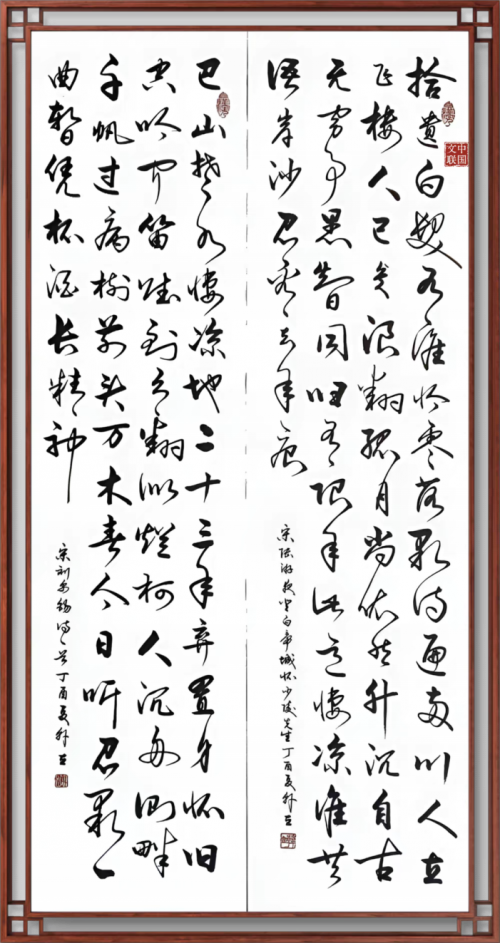 拾遗白髮有谁怜零落歌诗遍两川人立
飞楼今已矣浪翻孤月尚依然升沉自古
无穷事愚智同归有限年此意凄凉谁共
语岸沙君看去年痕
宋陆游夜登白帝城怀少陵先生丁酉夏
中国
文联
巴山楚水凄凉地二十三年弃置身怀旧
空吟闻笛赋到乡翻似烂柯人沉舟侧畔
千帆过病树前头万木春今日听君歌一
曲暂凭杯酒长精神
宋刘禹锡诗一首丁酉夏